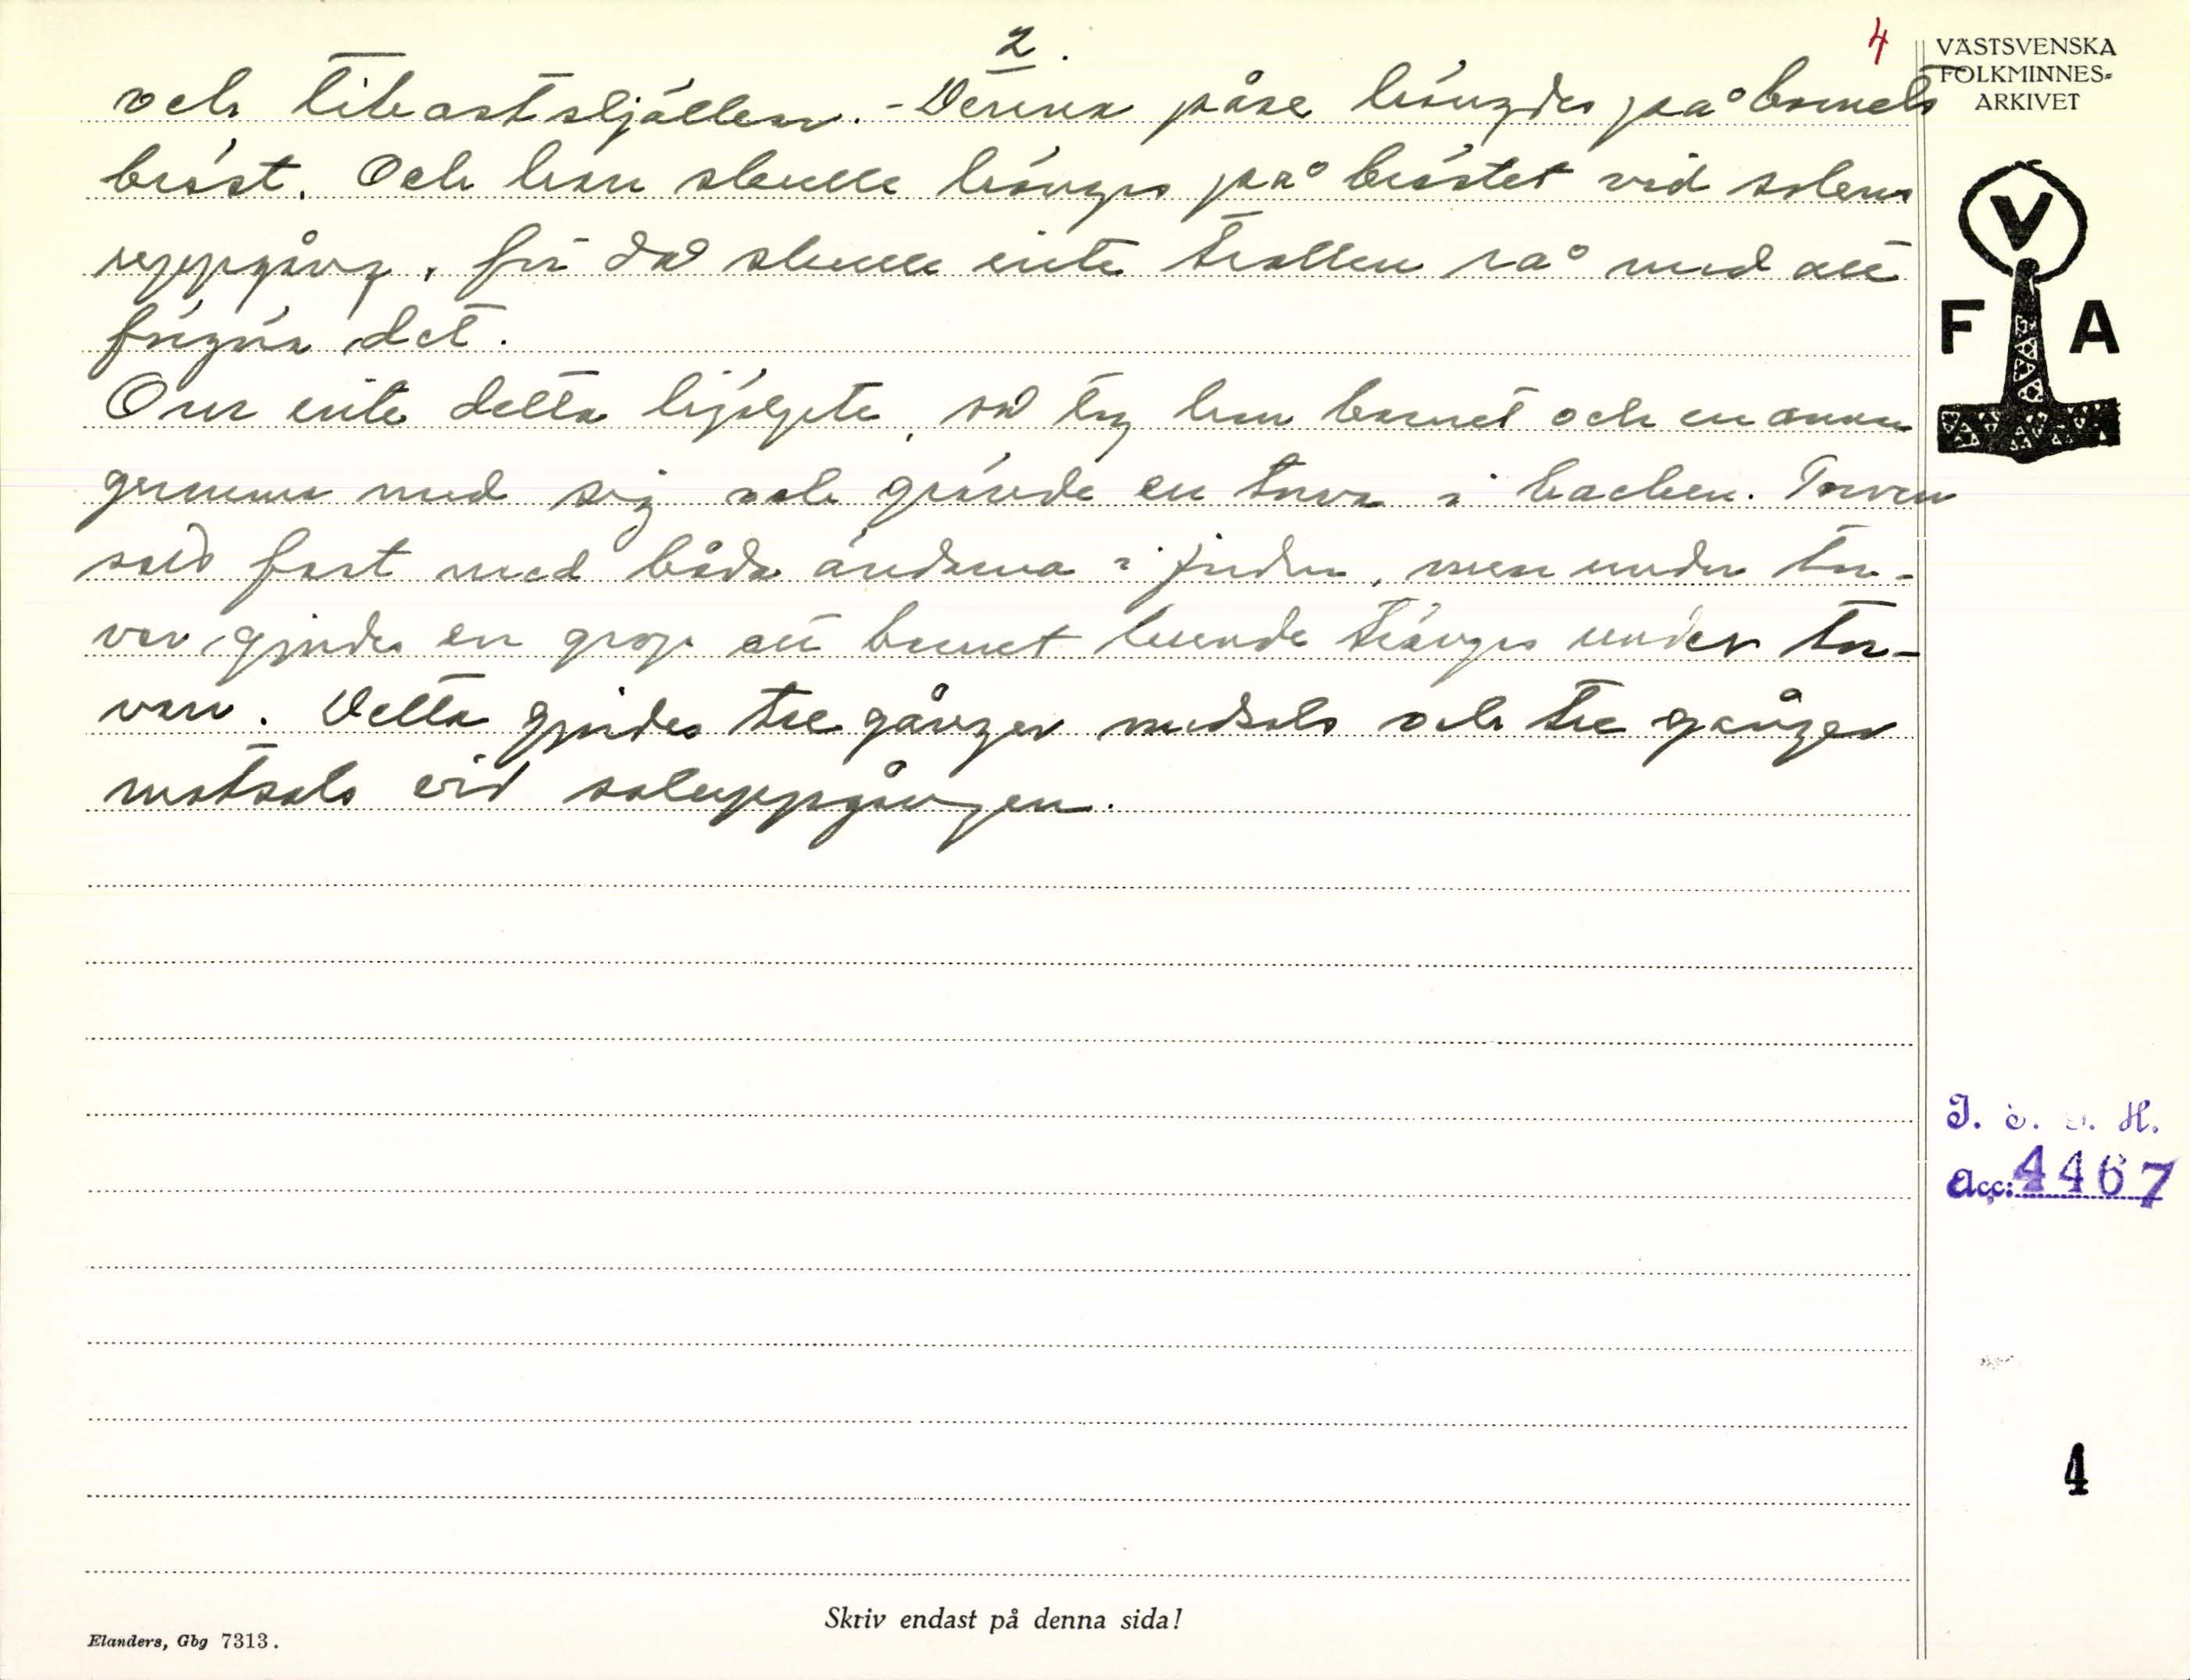 2.
4
VÄSTSVENSKA
FOLKMINNES=
ARKIVET
och tibastskjällen. - Denna påse hängdes på barnets
bröst. Och hon skulle hänges på bröstet vid solens
uppgång, för då skulle inte trollen rå med att
förgöra det.
Om inte detta hjälpte, så tog hon barnet och en annan
gumma med sig och grävde en torva i backen. Torven
satt fast med båda ändarna i jorden, men under tor-
van gjordes en grop att barnet kunde trängas under tor-
van. Detta gjordes tre gånger medsols och tre gånger
motsols vid soluppgången.
V
F A
I. H.
Acc: 4467
4
Skriv endast på denna sida!
Elanders, Gbg 7313.